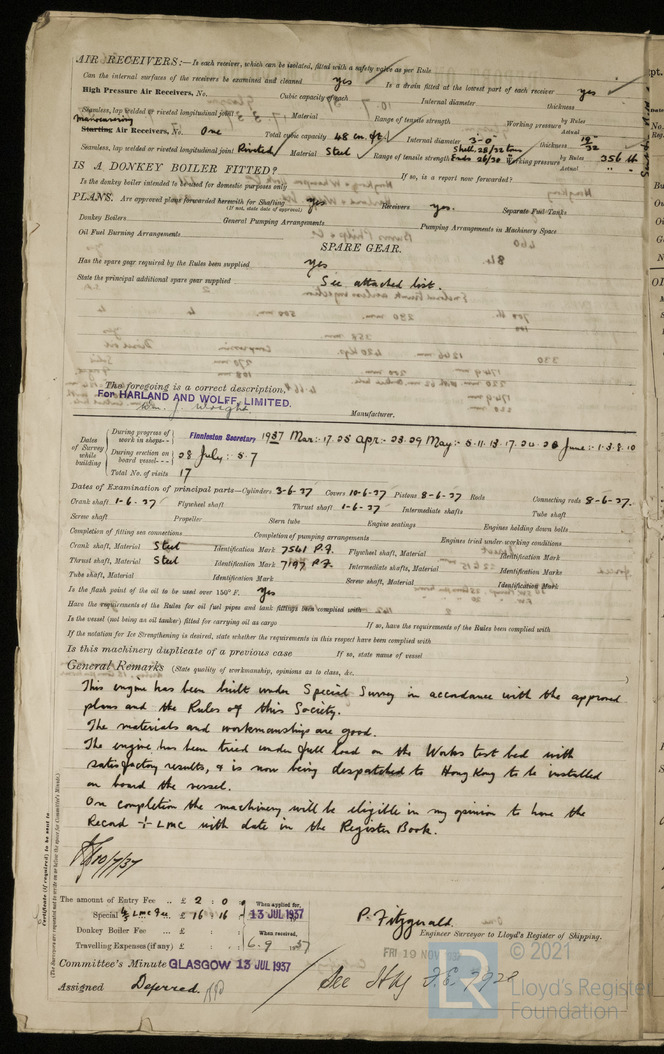 AIR RECEIVERS:—Is each receiver, which can be isolated, fitted with a safety valve as per Rule
Can the internal surfaces of the receivers be examined and cleaned yes Is a drain fitted at the lowest part of each receiver yes
High Pressure Air Receivers, No. Cubic capacity of each Internal diameter thickness
Seamless, lap welded or riveted longitudinal joint? Material Range of tensile strength Working pressure by Rules
Actual
manoeuvring
Starting Air Receivers, No. One Total cubic capacity 48 cu. ft. Internal diameter 3-0" thickness 19/32
Seamless, lap welded or riveted longitudinal joint Riveted Material Steel Range of tensile strength Shell. 28/32 tons Ends 26/30 Working pressure by Rules 356 lb
Actual " "
IS A DONKEY BOILER FITTED? If so, is a report now forwarded?
Is the donkey boiler intended to be used for domestic purposes only
PLANS. Are approved plans forwarded herewith for Shafting yes Receivers yes. Separate Fuel Tanks
(If not, state date of approval)
Donkey Boilers General Pumping Arrangements Pumping Arrangements in Machinery Space
Oil Fuel Burning Arrangements
SPARE GEAR.
Has the spare gear required by the Rules been supplied yes
State the principal additional spare gear supplied See attached list.
The foregoing is a correct description,
For HARLAND AND WOLFF, LIMITED.
Wm. J. Wright
Manufacturer.
Dates of Survey while building
During progress of work in shops-- Finnieston Secretary 1937 Mar:- 17. 25 Apr:- 23. 29 May:- 5. 11. 13. 17. 20. 26 June:- 1. 3. 8. 10
During erection on board vessel--- 28 July:- 5. 7
Total No. of visits 17
Dates of Examination of principal parts—Cylinders 3-6-37 Covers 10-6-37 Pistons 8-6-37 Rods Connecting rods 8-6-37.
Crank shaft 1-6-37 Flywheel shaft Thrust shaft 1-6-37 Intermediate shafts Tube shaft
Screw shaft Propeller Stern tube Engine seatings Engines holding down bolts
Completion of fitting sea connections Completion of pumping arrangements Engines tried under working conditions
Crank shaft, Material Steel Identification Mark 7561 P.F. Flywheel shaft, Material Identification Mark
Thrust shaft, Material Steel Identification Mark 7197 P.F. Intermediate shafts, Material Identification Marks
Tube shaft, Material Identification Mark Screw shaft, Material Identification Mark
Is the flash point of the oil to be used over 150° F. Yes
Have the requirements of the Rules for oil fuel pipes and tank fittings been complied with
Is the vessel (not being an oil tanker) fitted for carrying oil as cargo If so, have the requirements of the Rules been complied with
If the notation for Ice Strengthening is desired, state whether the requirements in this respect have been complied with
Is this machinery duplicate of a previous case If so, state name of vessel
General Remarks (State quality of workmanship, opinions as to class, &c.
This engine has been built under Special Survey in accordance with the approved
plans and the Rules of this Society.
The materials and workmanship are good.
The engine has been tried under full load on the Works test bed with
satisfactory results, & is now being despatched to Hong Kong to be installed
on board the vessel.
On completion the machinery will be eligible in my opinion to have the
Record + LMC with date in the Register Book.
10/7/37
Certificate (if required) to be sent to
(The Surveyors are requested not to write on or below the space for Committee's Minute.)
The amount of Entry Fee .. £ 2 : 0 : When applied for,
Special ½ LMC Fee £ 16 : 16 : 13 JUL 1937
Donkey Boiler Fee ... £ : : When received,
Travelling Expenses (if any) £ : : 6. 9 1937
P. Fitzgerald
Engineer Surveyor to Lloyd's Register of Shipping.
FRI 19 NOV 1937
Committee's Minute GLASGOW 13 JUL 1937
Assigned Deferred.
See Hkg F.E. 7928
© 2021
LR
Lloyd's Register
Foundation